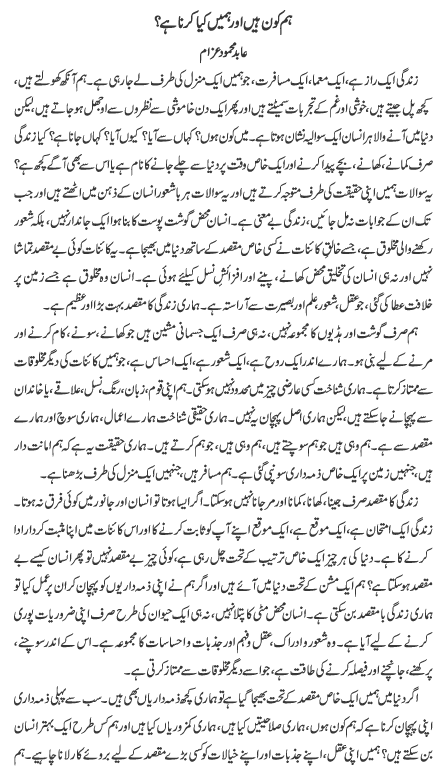 ہم کون ہیں اور ہمیں کیا کرنا ہے؟
عابد محمود عزام
زندگی ایک راز ہے، ایک معما، ایک مسافرت، جو ہمیں ایک منزل کی طرف لے جا رہی ہے۔ ہم آنکھ کھولتے ہیں،
کچھ پل جیتے ہیں، خوشی اور غم کے تجربات سمیٹتے ہیں اور پھر ایک دن خاموشی سے نظروں سے اوجھل ہو جاتے ہیں، لیکن
دنیا میں آنے والا ہر انسان ایک سوالیہ نشان ہوتا ہے۔ میں کون ہوں؟ کہاں سے آیا؟ کیوں آیا؟ کہاں جانا ہے؟ کیا زندگی
صرف کمانے، کھانے، بچے پیدا کرنے اور ایک خاص وقت پر دنیا سے چلے جانے کا نام ہے یا اس سے بھی آگے کچھ ہے؟
یہ سوالات ہمیں اپنی حقیقت کی طرف متوجہ کرتے ہیں اور یہ سوالات ہر باشعور انسان کے ذہن میں اٹھتے ہیں اور جب
تک ان کے جوابات نہ مل جائیں، زندگی بے معنی ہے۔ انسان محض گوشت پوست کا بنا ہوا ایک جاندار نہیں، بلکہ شعور
رکھنے والی مخلوق ہے، جسے خالقِ کائنات نے کسی خاص مقصد کے ساتھ دنیا میں بھیجا ہے۔ یہ کائنات کوئی بے مقصد تماشا
نہیں اور نہ ہی انسان کی تخلیق محض کھانے، پینے اور افزائشِ نسل کیلئے ہوئی ہے۔ انسان وہ مخلوق ہے جسے زمین پر
خلافت عطا کی گئی، جو عقل، شعور، علم اور بصیرت سے آراستہ ہے۔ ہماری زندگی کا مقصد بہت بڑا اور عظیم ہے۔
ہم صرف گوشت اور ہڈیوں کا مجموعہ نہیں، نہ ہی صرف ایک جسمانی مشین ہیں جو کھانے، سونے، کام کرنے اور
مرنے کے لیے بنی ہو۔ ہمارے اندر ایک روح ہے، ایک شعور ہے، ایک احساس ہے، جو ہمیں کائنات کی دیگر مخلوقات
سے ممتاز کرتا ہے۔ ہماری شناخت کسی عارضی چیز میں محدود نہیں ہو سکتی۔ ہم اپنی قوم، زبان، رنگ، نسل، علاقے، یا خاندان
سے پہچانے جا سکتے ہیں، لیکن ہماری اصل پہچان یہ نہیں۔ ہماری حقیقی شناخت ہمارے اعمال، ہماری سوچ اور ہمارے
مقصد سے ہے۔ ہم وہی ہیں جو ہم سوچتے ہیں، ہم وہی ہیں، جو ہم کرتے ہیں۔ ہماری حقیقت یہ ہے کہ ہم امانت دار
ہیں، جنہیں زمین پر ایک خاص ذمہ داری سونپی گئی ہے۔ ہم مسافر ہیں، جنہیں ایک منزل کی طرف بڑھنا ہے۔
زندگی کا مقصد صرف جینا، کھانا، کمانا اور مر جانا نہیں ہو سکتا۔ اگر ایسا ہوتا تو انسان اور جانور میں کوئی فرق نہ ہوتا۔
زندگی ایک امتحان ہے، ایک موقع ہے، ایک موقع اپنے آپ کو ثابت کرنے کا اور اس کائنات میں اپنا مثبت کردار ادا
کرنے کا ہے۔ دنیا کی ہر چیز ایک خاص ترتیب کے تحت چل رہی ہے، کوئی چیز بے مقصد نہیں تو پھر انسان کیسے بے
مقصد ہو سکتا ہے؟ ہم ایک مشن کے تحت دنیا میں آئے ہیں اور اگر ہم نے اپنی ذمہ داریوں کو پہچان کر ان پر عمل کیا تو
ہماری زندگی با مقصد بن سکتی ہے۔ انسان محض مٹی کا پتلا نہیں، نہ ہی ایک حیوان کی طرح صرف اپنی ضروریات پوری
کرنے کے لیے آیا ہے۔ وہ شعور و ادراک، عقل و فہم اور جذبات و احساسات کا مجموعہ ہے۔ اس کے اندر سوچنے،
پرکھنے، جانچنے اور فیصلہ کرنے کی طاقت ہے، جو اسے دیگر مخلوقات سے ممتاز کرتی ہے۔
اگر دنیا میں ہمیں ایک خاص مقصد کے تحت بھیجا گیا ہے تو ہماری کچھ ذمہ داریاں بھی ہیں۔ سب سے پہلی ذمہ داری
اپنی پہچان کرنا ہے کہ ہم کون ہیں، ہماری صلاحیتیں کیا ہیں، ہماری کمزوریاں کیا ہیں اور ہم کس طرح ایک بہتر انسان
بن سکتے ہیں؟ ہمیں اپنی عقل، اپنے جذبات اور اپنے خیالات کو کسی بڑے مقصد کے لیے بروئے کار لانا چاہیے۔ ہم